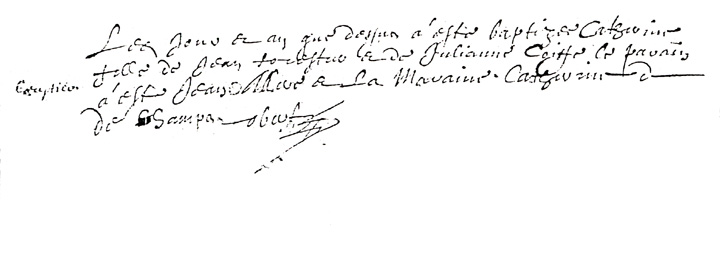 Les Jour et an que dessus a este baptizee Catherine
fille de Jean et de Julianne Coiffe le parain
a este Jean et La Maraine Catherine
de Champ